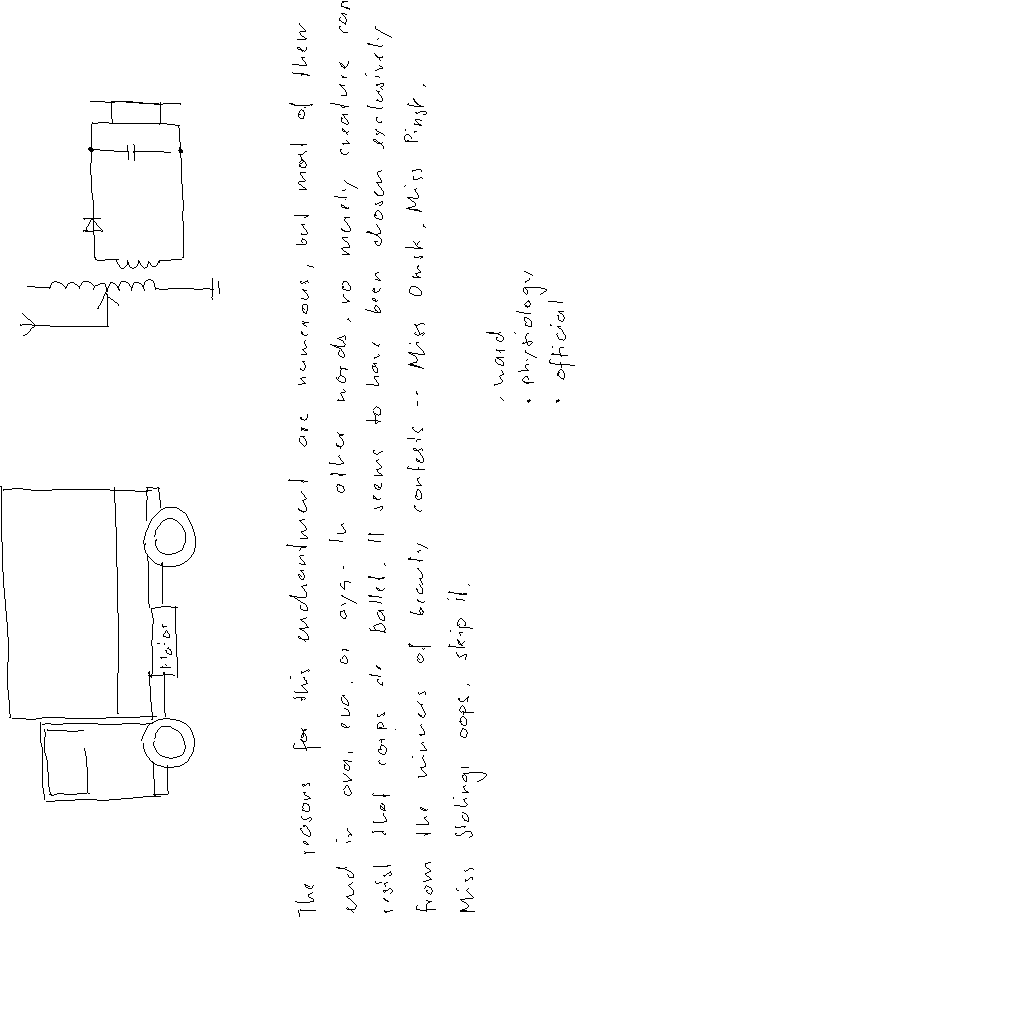 Motor
The reasons for this enchantment are numerous, but most of them
end in ova, eva, or aya. In other words, no merely creature can
resist that corps de ballet. It seems to have been chosen exclusively
from the winners of beauty contests -- Miss Omsk, Miss Pinsk,
Miss Stalingr oops, skip it.
• ward
• physiology
• official